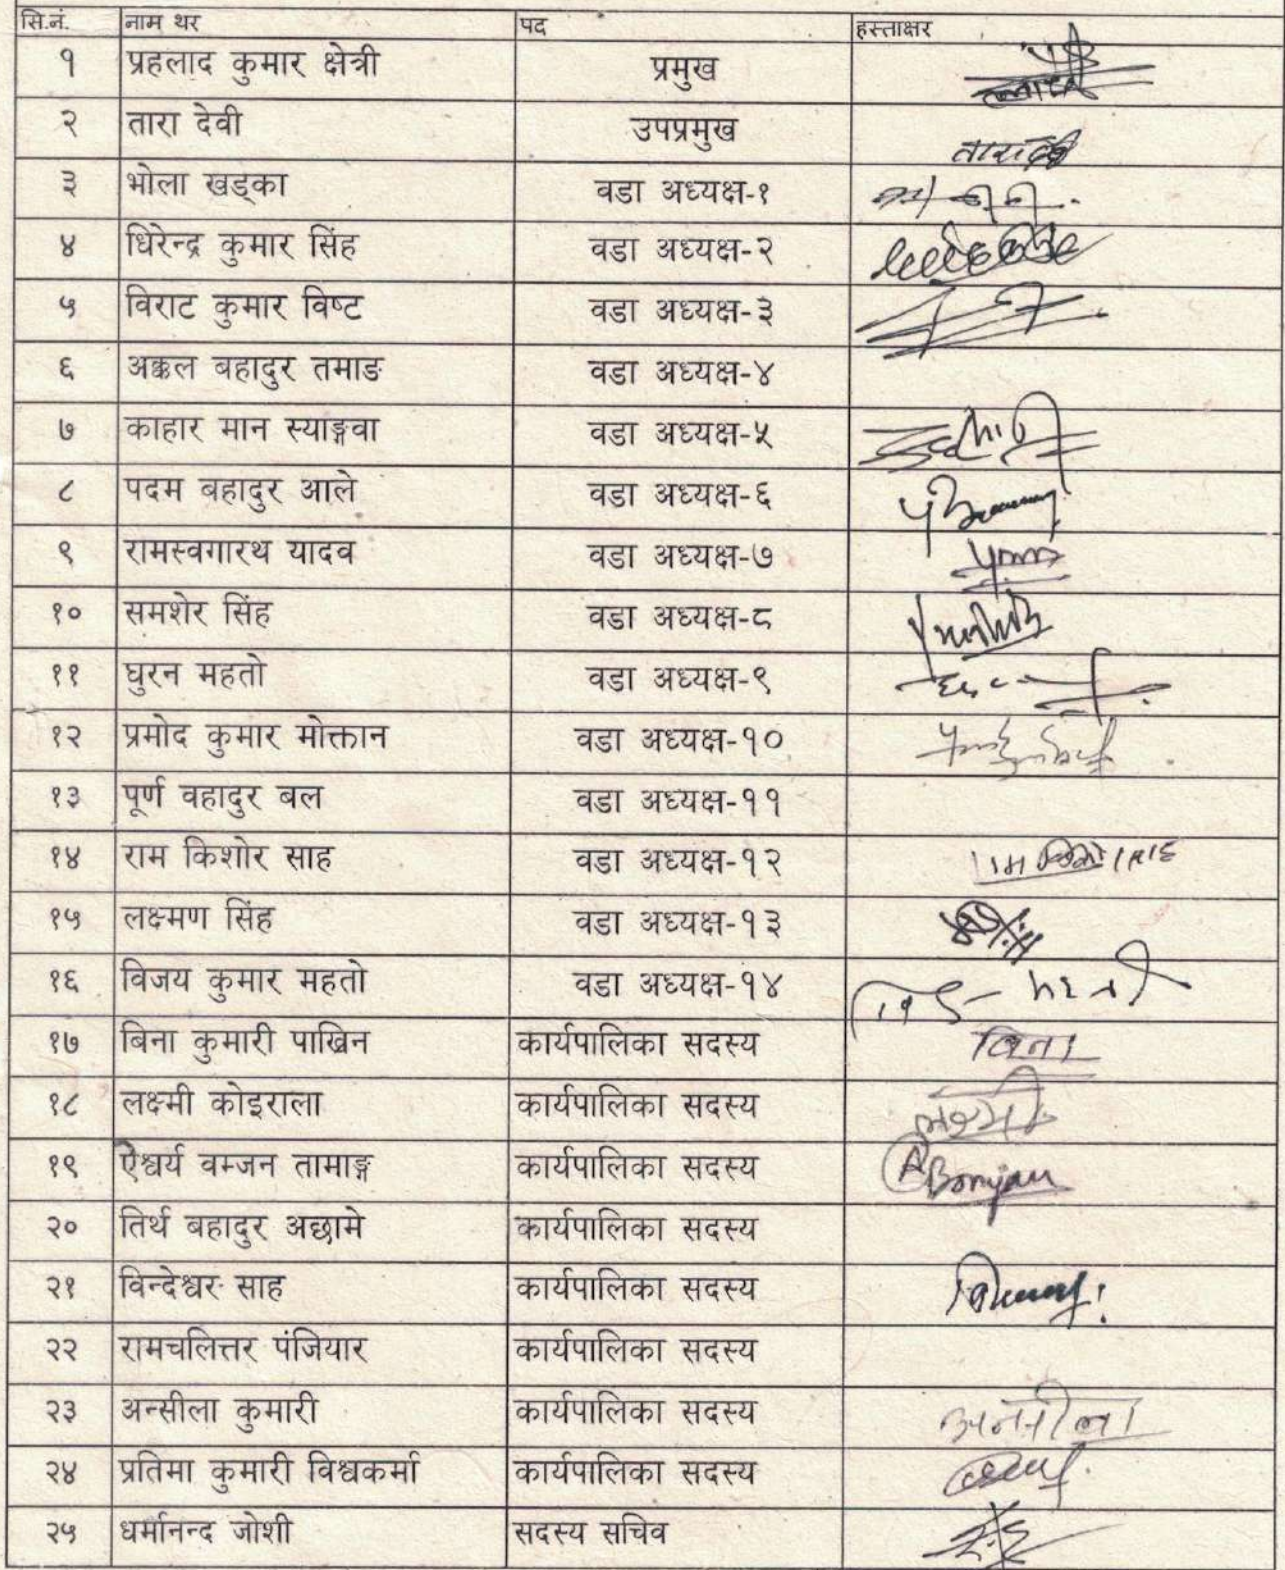 सि.नं. नाम थर पद हस्ताक्षर
१ प्रहलाद कुमार क्षेत्री प्रमुख
२ तारा देवी उपप्रमुख तारादेवी
३ भोला खड्का वडा अध्यक्ष-१
४ धिरेन्द्र कुमार सिंह वडा अध्यक्ष-२
५ विराट कुमार विष्ट वडा अध्यक्ष-३
६ अक्कल बहादुर तमाङ वडा अध्यक्ष-४
७ काहार मान स्याङ्गवा वडा अध्यक्ष-५
८ पदम बहादुर आले वडा अध्यक्ष-६
९ रामस्वगारथ यादव वडा अध्यक्ष-७
१० समशेर सिंह वडा अध्यक्ष-८
११ घुरन महतो वडा अध्यक्ष-९
१२ प्रमोद कुमार मोक्तान वडा अध्यक्ष-१०
१३ पूर्ण वहादुर बल वडा अध्यक्ष-११
१४ राम किशोर साह वडा अध्यक्ष-१२
१५ लक्ष्मण सिंह वडा अध्यक्ष-१३
१६ विजय कुमार महतो वडा अध्यक्ष-१४
१७ बिना कुमारी पाख्रिन कार्यपालिका सदस्य विना
१८ लक्ष्मी कोइराला कार्यपालिका सदस्य लक्ष्मी
१९ ऐश्वर्य वम्जन तामाङ्ग कार्यपालिका सदस्य ABomjan
२० तिर्थ बहादुर अछामे कार्यपालिका सदस्य
२१ विन्देश्वर साह कार्यपालिका सदस्य
२२ रामचलित्तर पंजियार कार्यपालिका सदस्य
२३ अन्सीला कुमारी कार्यपालिका सदस्य अनसीला
२४ प्रतिमा कुमारी विश्वकर्मा कार्यपालिका सदस्य
२५ धर्मानन्द जोशी सदस्य सचिव